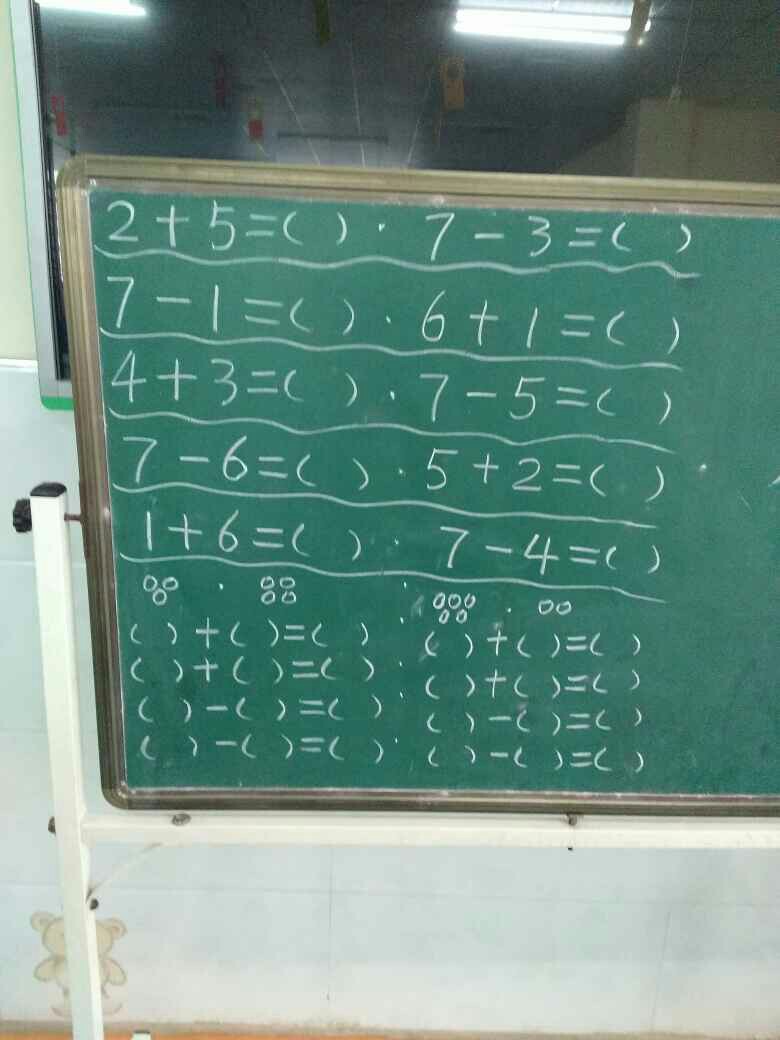 2+5=( ) · 7-3=( )
7-1=( ) · 6+1=( )
4+3=( ) · 7-5=( )
7-6=( ) · 5+2=( )
1+6=( ) · 7-4=( )
( )+( )=( ) · ( )+( )=( )
( )+( )=( ) · ( )+( )=( )
( )-( )=( ) · ( )-( )=( )
( )-( )=( ) · ( )-( )=( )